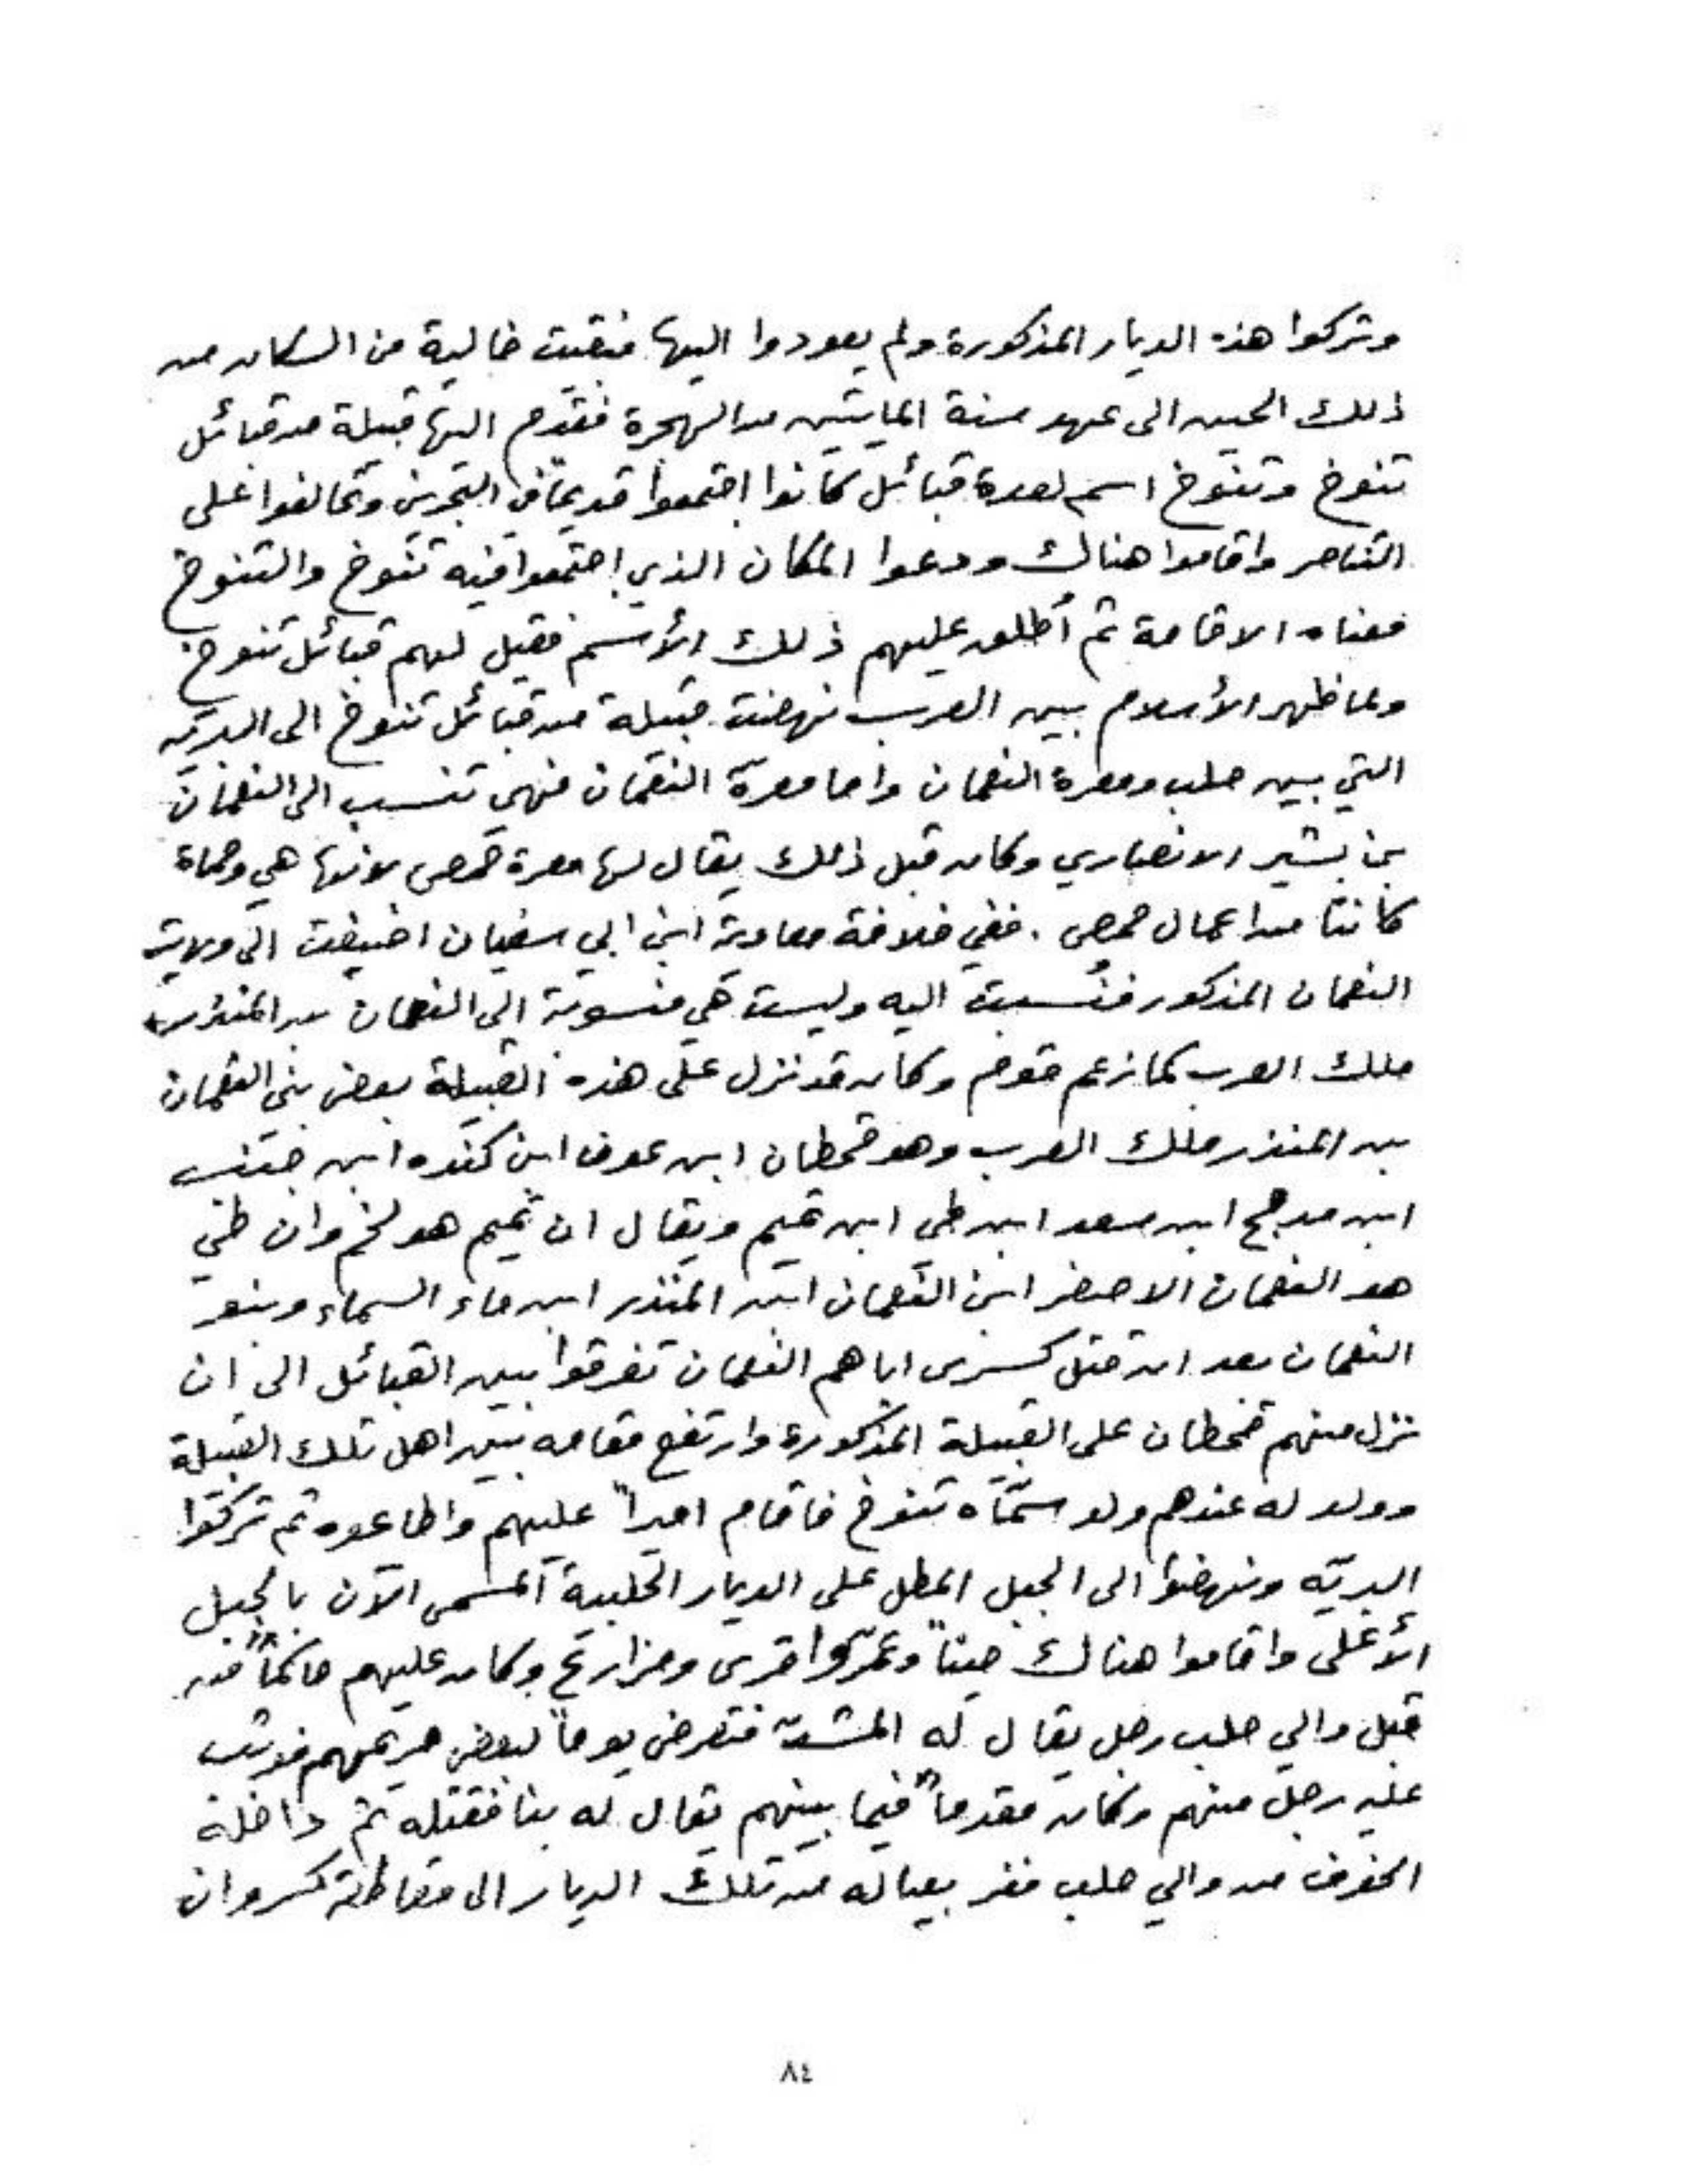 وتركوا هذه الديار المذكورة ولم يعودوا اليها فبقيت خالية من السكان من
ذلك الحين الى عهد سنة المايتين من الهجرة فقدم اليها قبيلة من قبائل
تنوخ وتنوخ اسم لعدة قبائل كانوا اجتمعوا قديماً في البحرين وتحالفوا على
التناصر واقاموا هناك ودعوا المكان الذي اجتمعوا فيه تنوخ والتنوخ
معناه الاقامة ثم أطلق عليهم ذلك الأسم فقيل لهم قبائل تنوخ
ولما ظهر الأسلام بين العرب نهضت قبيلة من قبائل تنوخ الى البريّه
التي بين حلب ومعرة النعمان واما معرّة النعمان فهي تنسب الى النعمان
بن بشير الانصاري وكان قبل ذلك يقال لها معرة حمص لانها هي وحماة
كانتا من اعمال حمص . ففي خلافة معاوية ابن ابي سفيان اضيفت الى ولاية
النعمان المذكور فنُسبت اليه وليست هي منسوبة الى النعمان بن المنذر
ملك العرب كما زعم قوم وكان قد نزل على هذه القبيلة بعض بني النعمان
بن المنذر ملك العرب وهو قحطان ابن عوف ابن كنده ابن جندب
ابن مدحج ابن سعد ابن طي ابن تميم ويقال ان تميم هو لخم وان طي
هو النعمان الاصغر ابن النعمان ابن المنذر ابن ماء السماء وبنو
النعمان بعد ان قتل كسرى اباهم النعمان تفرقوا بين القبائل الى ان
نزل منهم قحطان على القبيلة المذكورة وارتفع مقامه بين اهل تلك القبيلة
وولد له عندهم ولد سمّاه تنوخ فاقام اميراً عليهم واطاعوه ثم تركوا
البريّه ونهضوا الى الجبل المطل على الديار الحلبية المسمى الآن بالجبل
الأعلى واقاموا هناك حيناً وعمّروا قرى ومزارع وكان عليهم حاكماً من
قبل والي حلب رجل يقال له المشدّ فتعرض يوماً لبعض حريمهم فوثب
عليه رجل منهم وكان مقدماً فيما بينهم يقال له بنا فقتله ثم داخله
الخوف من والي حلب ففر بعياله من تلك الديار الى مقاطعة كسروان
٨٤